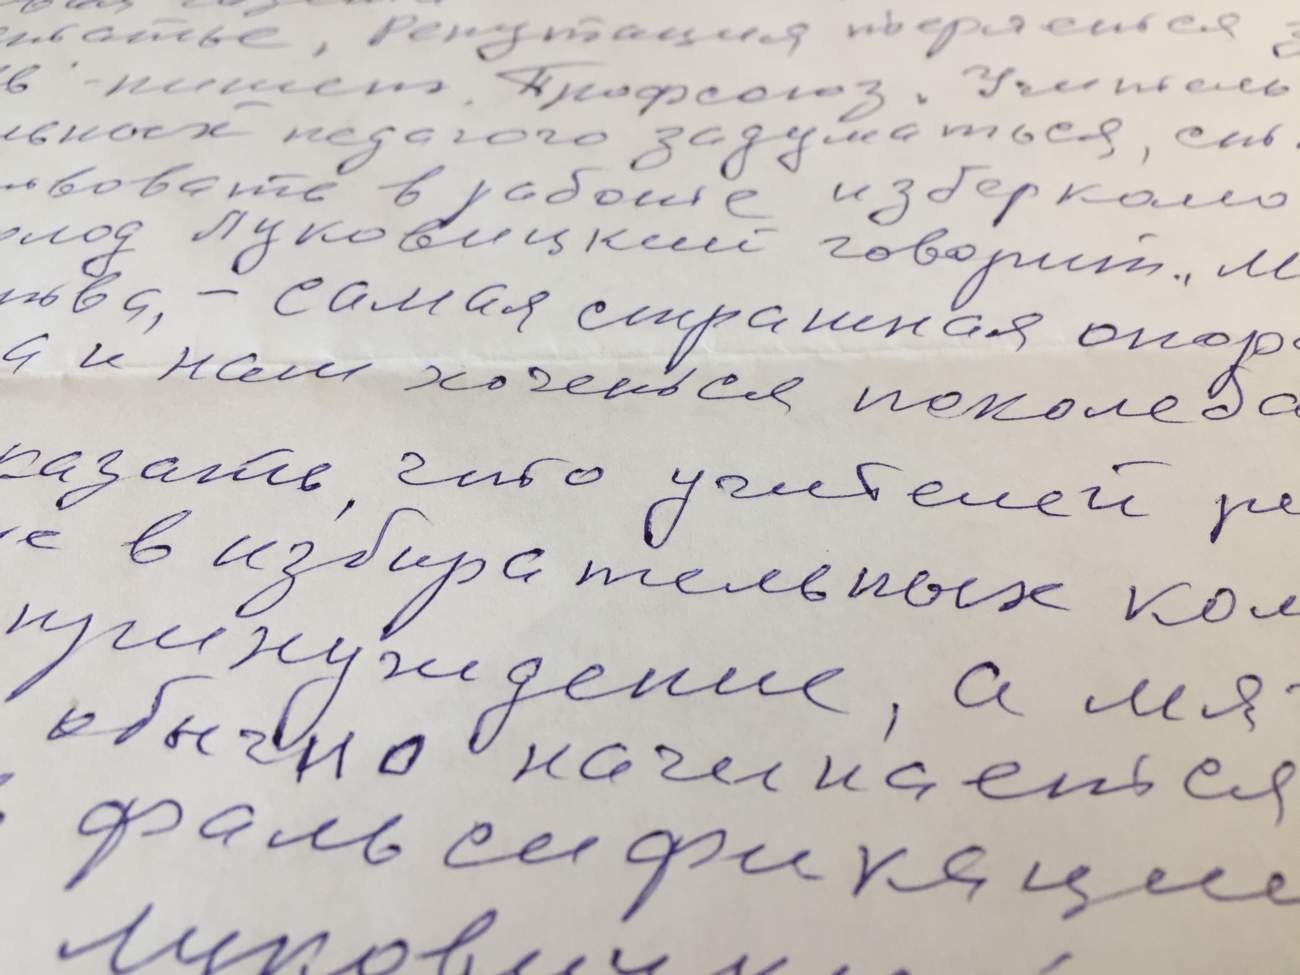 Репутация теряется з
- пишет Профсоюз. Учитель
льных педагого задуматься, сто
ьвовать в работе изберкомо
олод Луковицкий говорит „М
ства, - самая страшная опора
а и нам хочется поколеба
казать, что учителей ре
в избирательных ком
принуждение, а мят
обычно начинается
фальсификации
Луковицкий